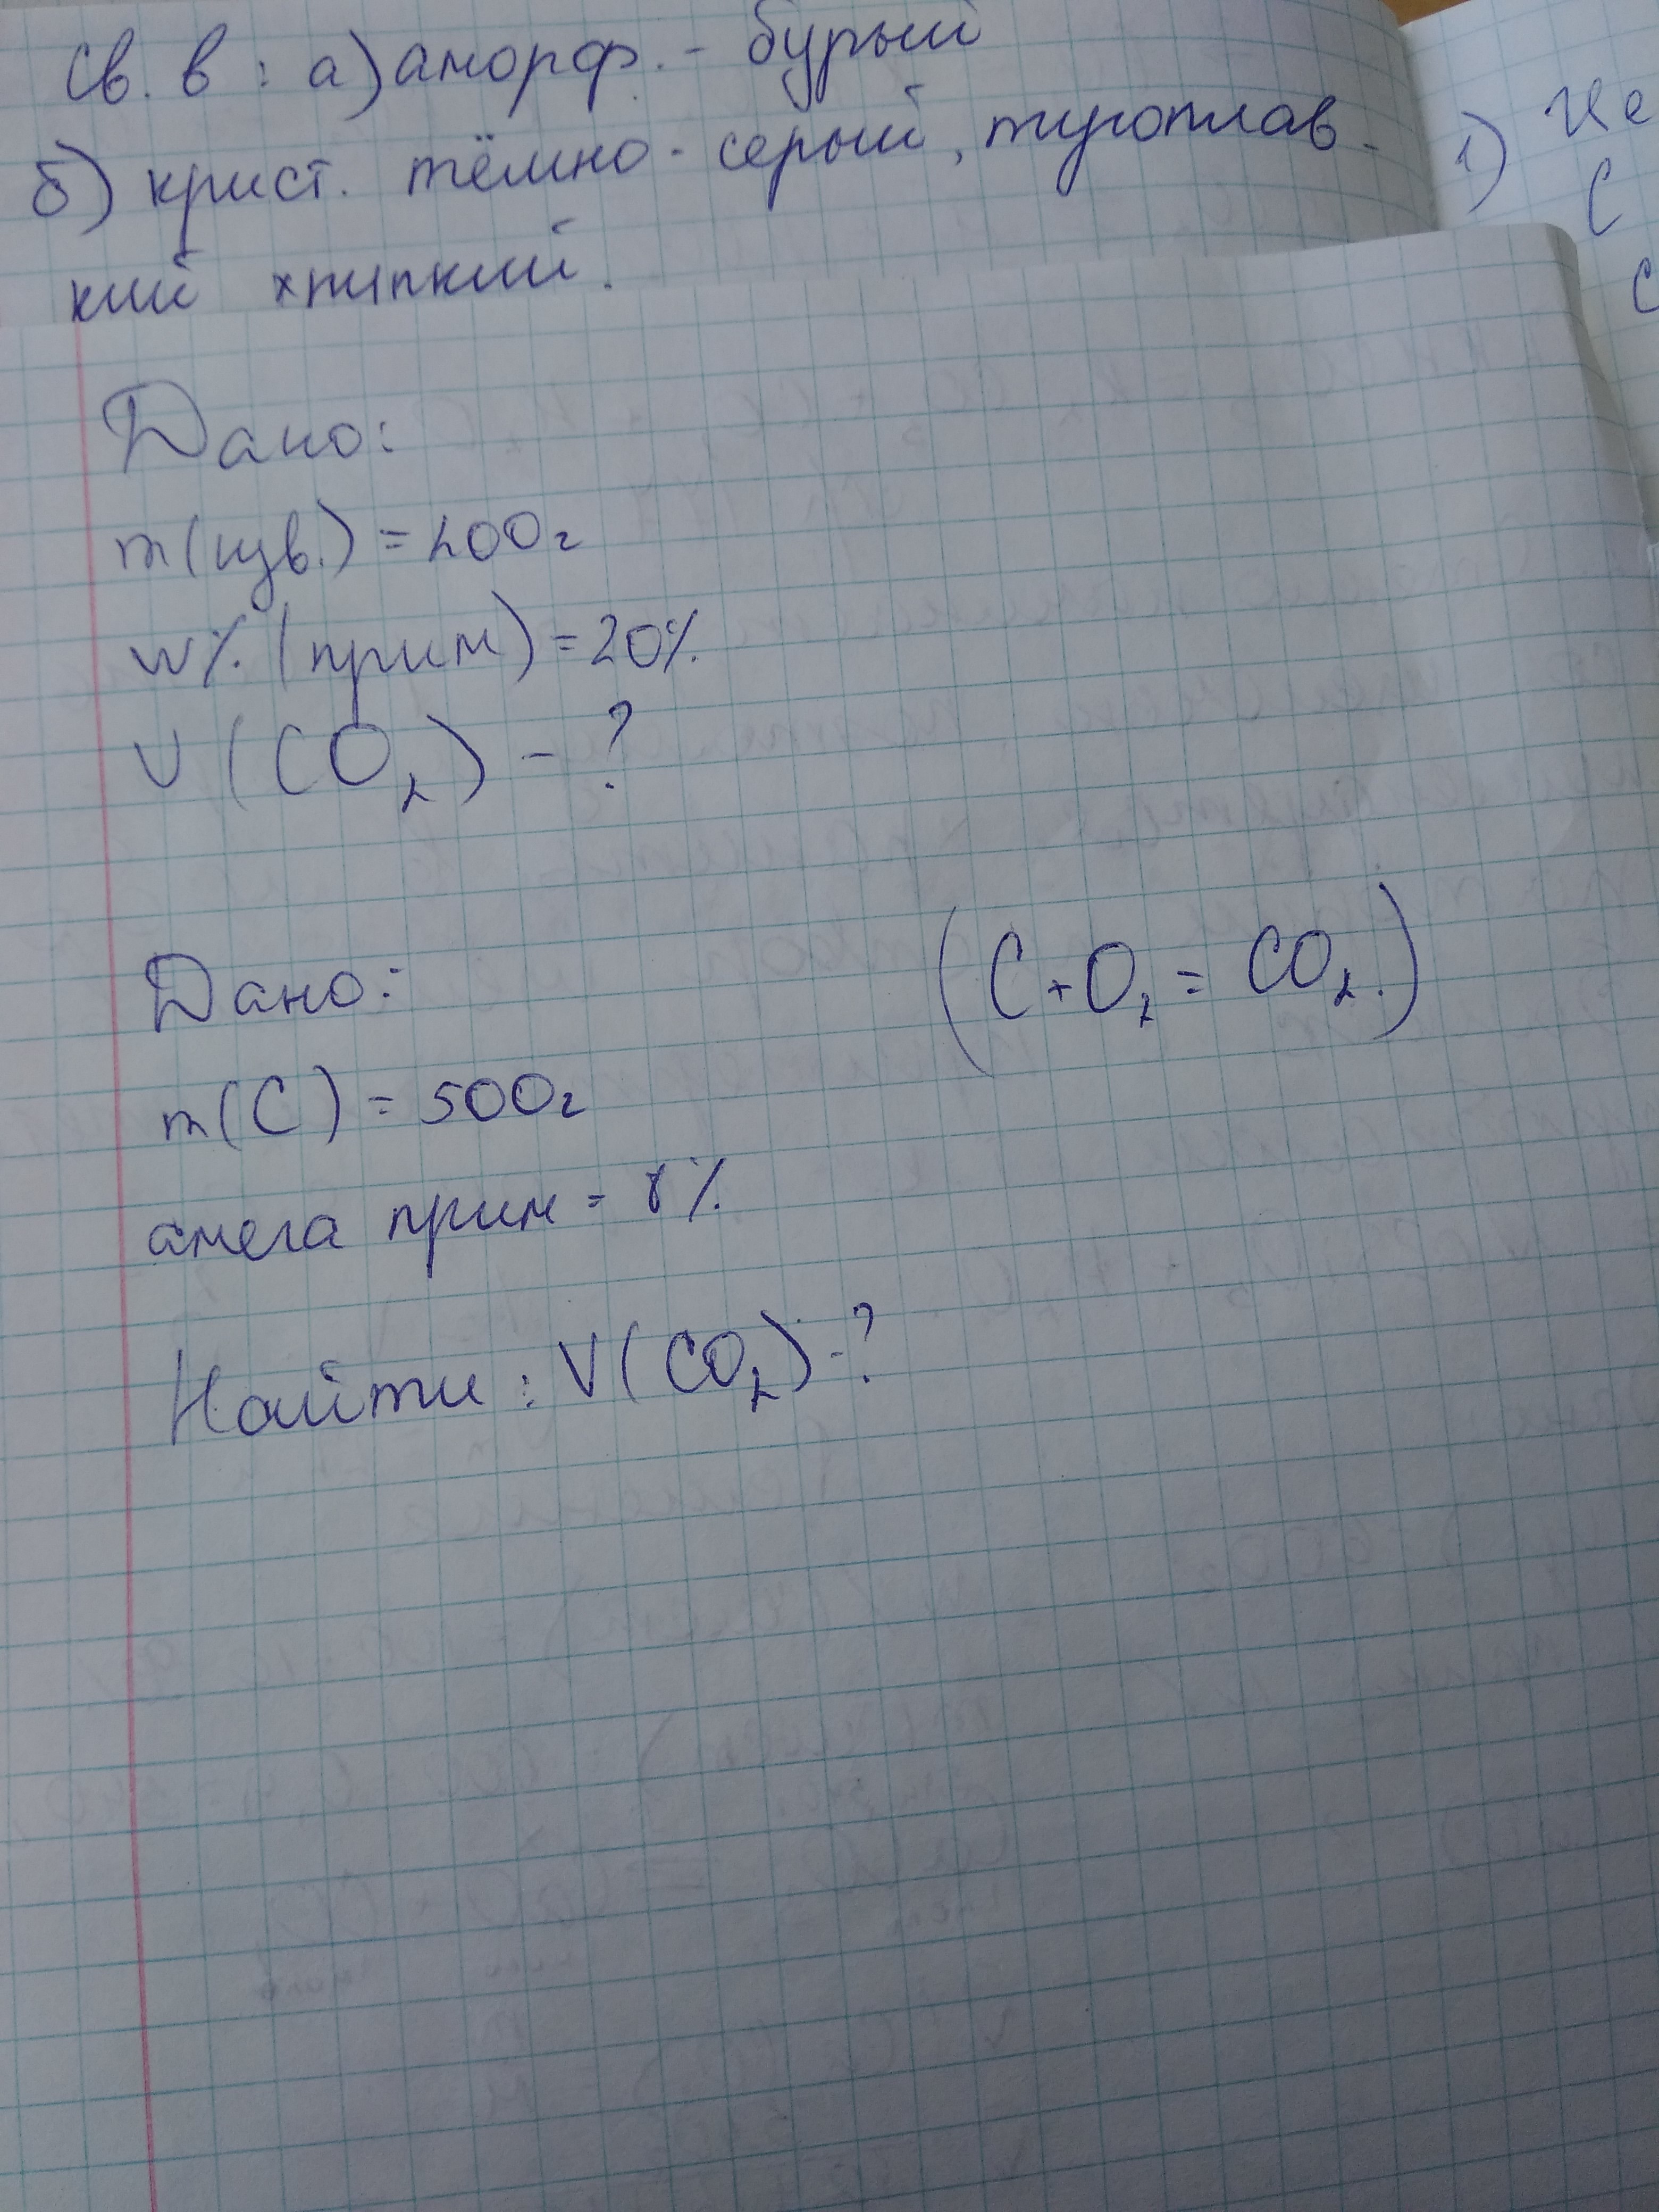 Св. в : а) аморф. - бурый
б) крист. тёмно - серый, тугоплав-
кий хрупкий.
1) Не
С
с
Дано:
m(изв.) = 200г
w% (прим) = 20%
V (CO₂) - ?
Дано:
(C + O₂ = CO₂.)
m(C) = 500г
амега прим = 8%
Найти : V(CO₂) - ?